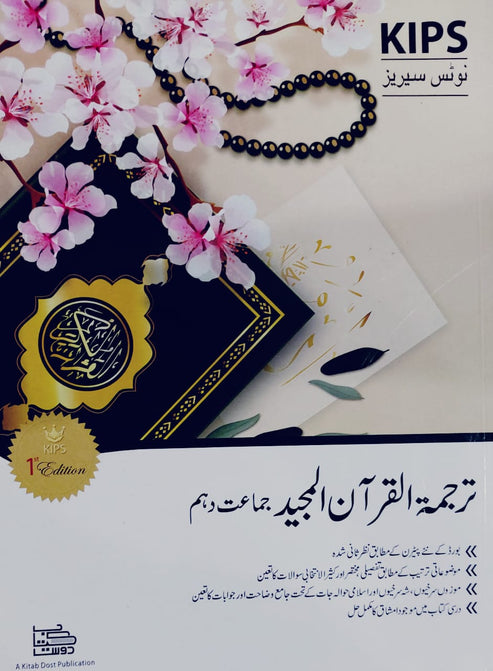 KIPS
نوٹس سیریز
القرآن الكريم
KIPS
1st Edition
ترجمۃ القرآن المجید جماعت دہم
بورڈ کے نئے پیٹرن کے مطابق نظر ثانی شدہ
موضوعاتی ترتیب کے مطابق تفصیلی، مختصر اور کثیر الانتخابی سوالات کا تعین
موزوں سرخیوں، شہ سرخیوں اور اسلامی حوالہ جات کے تحت جامع وضاحت اور جوابات کا تعین
درسی کتاب میں موجود امشاق کا مکمل حل
کتاب دوست
A Kitab Dost Publication